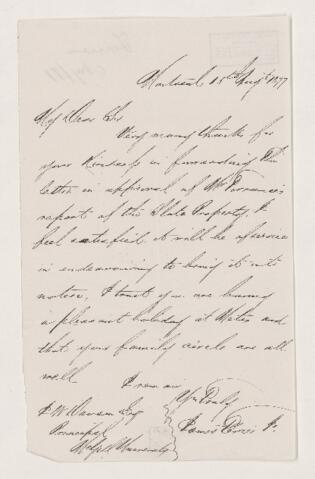 Montreal 15th Augt 1877
My Dear Sir
Very many thanks for
your kindness in forwarding the
letter in approval of Mr Torrance's
report of the Slate Property, I
feel satisfied it will be of service
in endeavouring to bring it into
notice, I trust you are having
a pleasant holiday at Metis and
that your family circle are all
well
I remain
Yrs Truly
J W Dawson Esq
Principal
McGill University